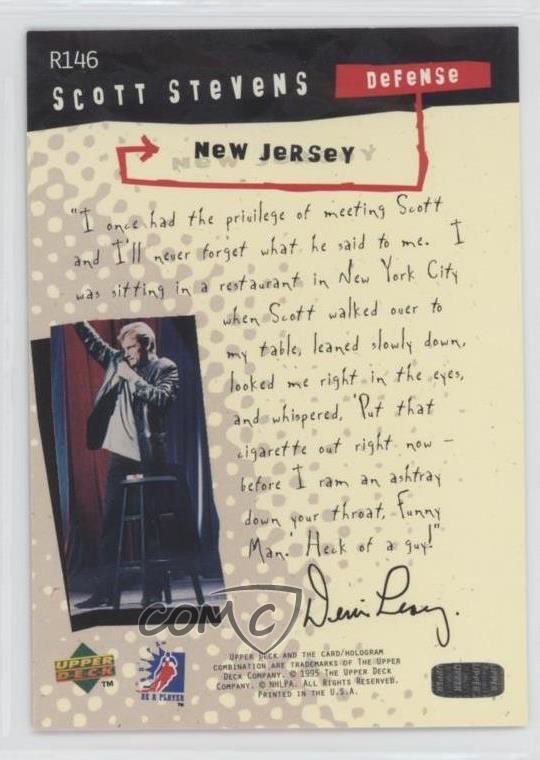 R146
SCOTT STEVENS
DEFENSE
NEW JERSEY
"I once had the privilege of meeting Scott
and I'll never forget what he said to me. I
was sitting in a restaurant in New York City
when Scott walked over to
my table, leaned slowly down,
looked me right in the eyes,
and whispered, 'Put that
cigarette out right now –
before I ram an ashtray
down your throat, Funny
Man.' Heck of a guy!"
Denis Leary.
COMC
UPPER DECK AND THE CARD/HOLOGRAM
COMBINATION ARE TRADEMARKS OF THE UPPER
DECK COMPANY. © 1995 THE UPPER DECK
COMPANY. © NHLPA. ALL RIGHTS RESERVED.
PRINTED IN THE U.S.A.
UPPER
DECK TM
BE A PLAYER TM